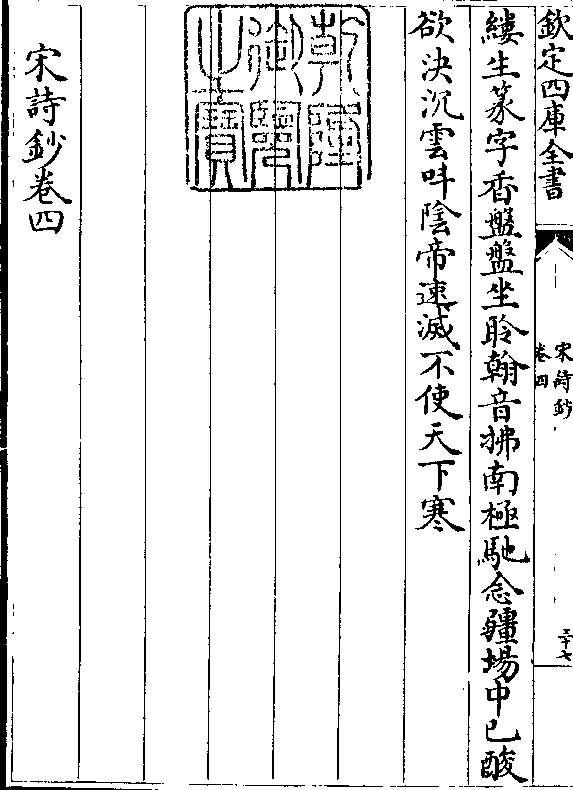 欽定四庫全書
宋詩鈔
卷四
三十七
縷生篆字香盤盤坐聆翰音拂南極馳念疆場中已酸
欲決沉雲叫陰帝速滅不使天下寒
乾隆御覽之寶
宋詩鈔卷四